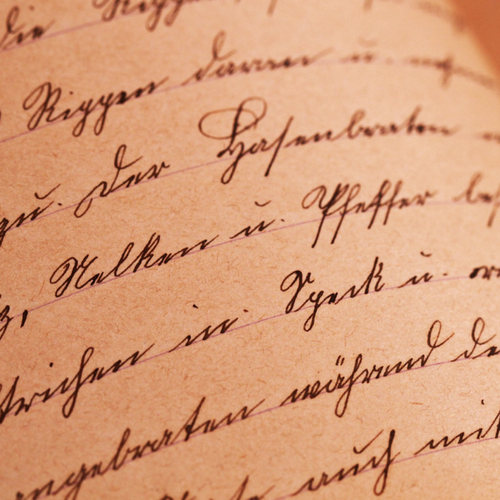 die Rippen
Rippen daran u.
zu. Der Hasenbraten
Nelken u. Pfeffer bes
trichen in Speck u.
angebraten während de
auch mit